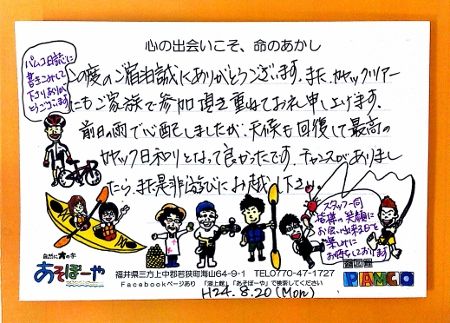 心の出会いこそ、命のあかし
パムコ日誌に
書きこみして
下さりありが
とうございます
この度のご宿泊誠にありがとうございます。また、カヤックツアー
にもご家族で参加頂き重ねてお礼申し上げます。
前日の雨で心配しましたが、天候も回復して最高の
カヤック日和りとなって良かったです。チャンスがありまし
たら、また是非遊びにお越し下さい。
スタッフ一同
皆様の笑顔に
お会い出来る日を
楽しみに
お待ちしております
自然に
あそぼーや
福井県三方上中郡若狭町海山64-9-1 TEL0770-47-1727
Facebookページあり 「湖上館」「あそぼーや」で検索してください
湖上館
PAMCO
H24.8.20(Mon)